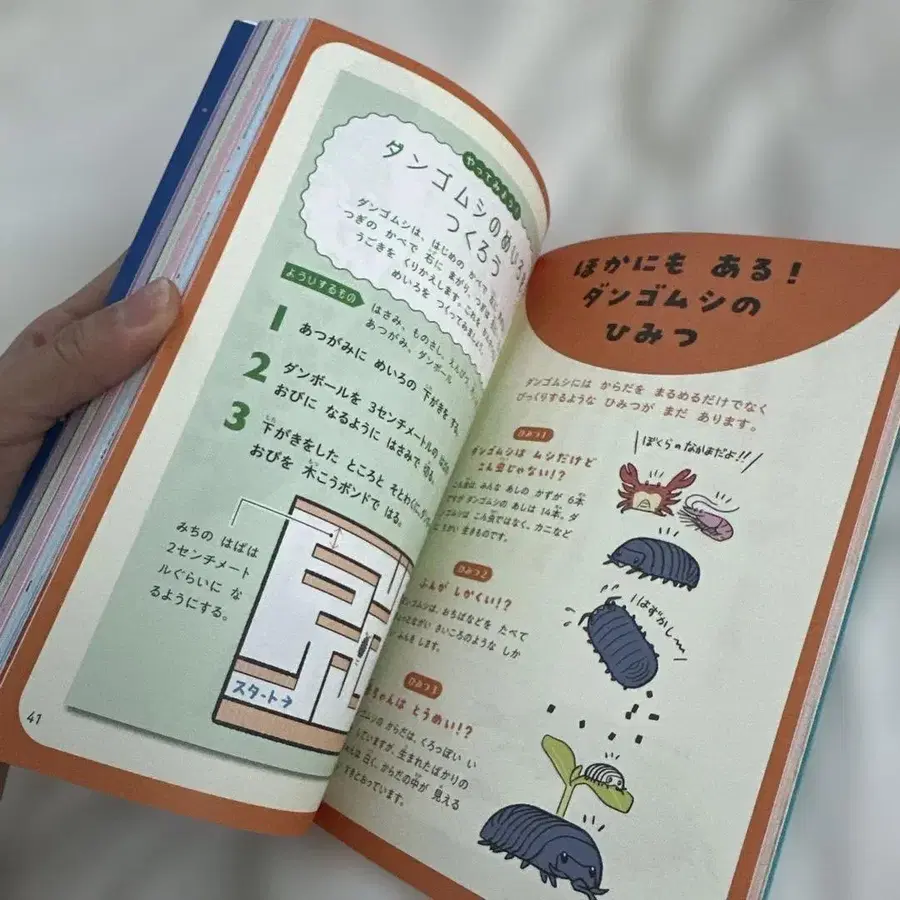 やってみよう!
ダンゴムシのめいろ
つくろう
ダンゴムシは、はじめの かべで 右に
つぎの かべで 右に まがり、つぎは
うごきを くりかえします。これを
めいろを つくってみましょう。
よういするもの
はさみ、ものさし、えんぴつ
あつがみ、ダンボール
1
あつがみに めいろの 下がきを する。
2
ダンボールを 3センチメートルの
おびに なるように はさみで 切る。
3
下がきをした ところと そとわくに
おびを 木こうボンドで はる。
みちの はばは
2センチメート
ルぐらいに な
るようにする。
スタート→
41
ほかにも ある!
ダンゴムシの
ひみつ
ダンゴムシには からだを まるめるだけでなく
びっくりするような ひみつが まだ あります。
ひみつ1
ダンゴムシは ムシだけど
こん虫じゃない!?
こん虫は みんな あしの かずが 6本
ですが ダンゴムシの あしは 14本。ダ
ゴムシは こん虫ではなく、カニなど
生きものです。
ぼくらの なかまだよ!!
ひみつ2
ふんが しかくい!?
ンゴムシは、おちばなどを たべて
さいころのような しか
ふんを します。
はずかし〜
ひみつ3
ちゃんは とうめい!?
ゴムシの からだは、くろっぽい い
していますが、生まれたばかりの
は 白く、からだの中が 見える
すきとおっています。